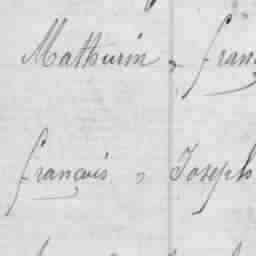 Mathurin,
françois, Joseph